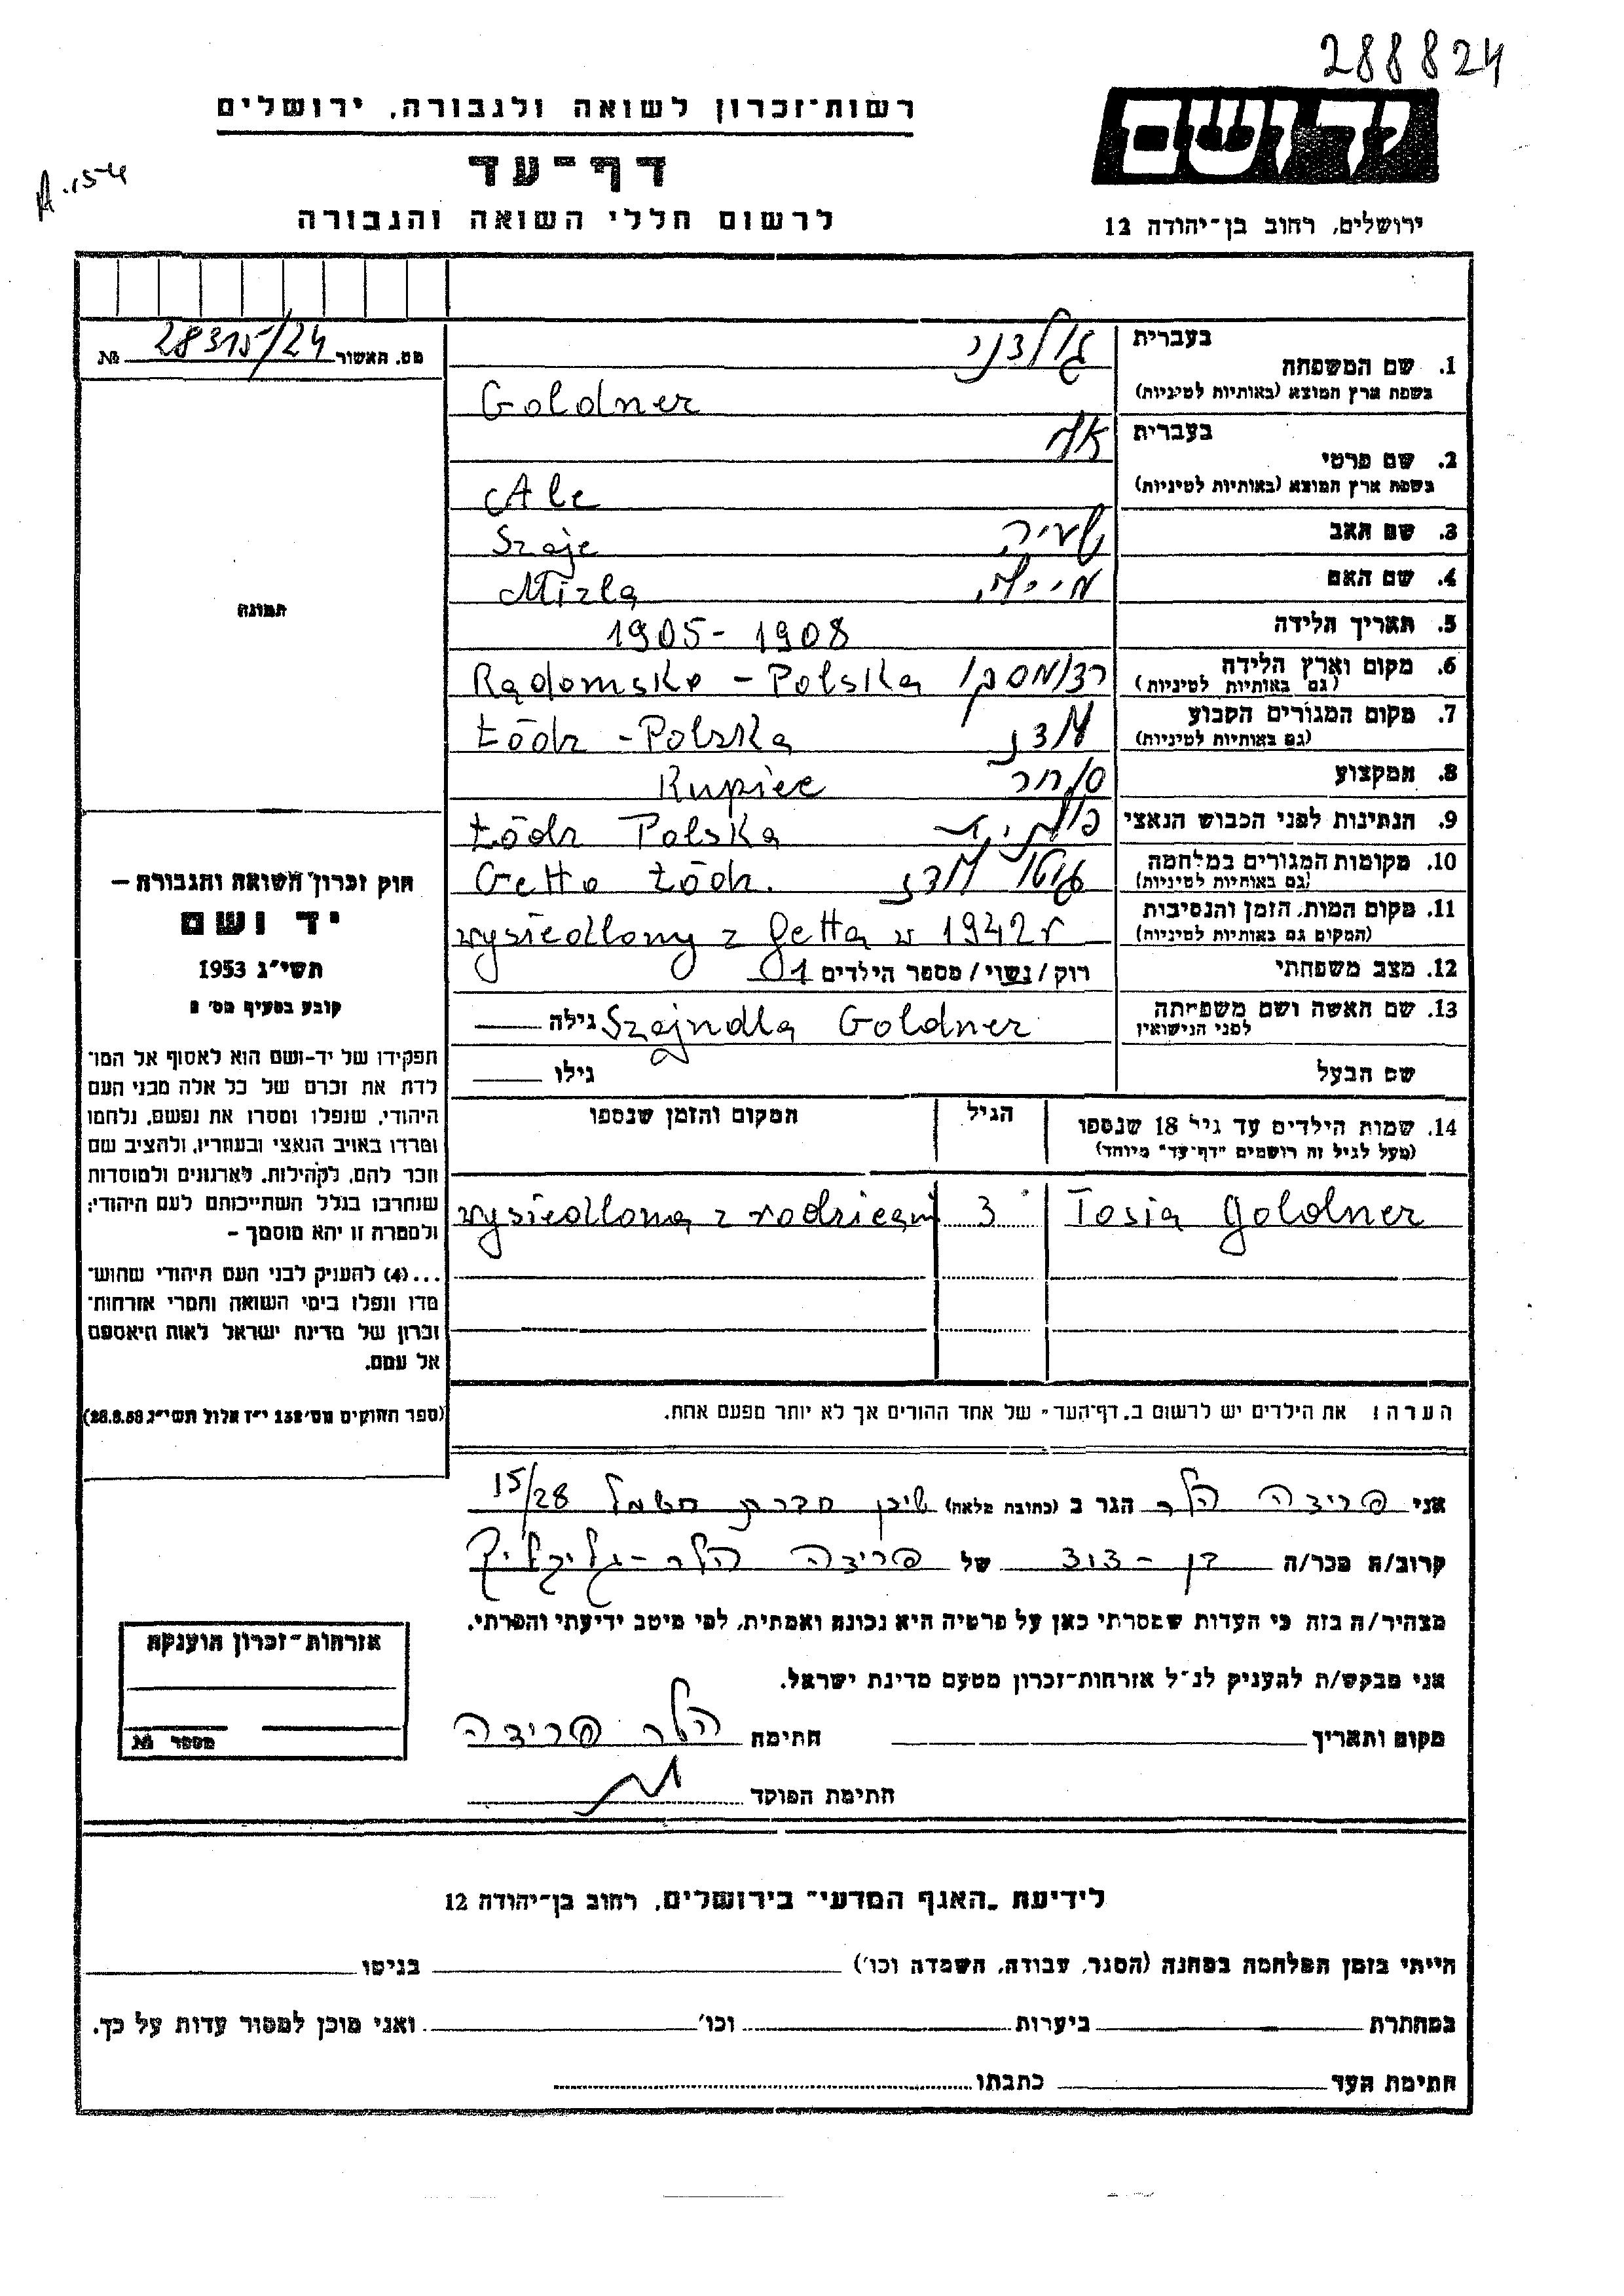 288824
רשות־זכרון לשואה ולגבורה, ירושלים
יד ושם
דף־עד
A.154
לרשום חללי השואה והגבורה
ירושלים, רחוב בן־יהודה 12
מס. האשור 28315/24 №
בעברית
1. שם המשפחה
בשפת ארץ המוצא (באותיות לטיניות) Goldner
בעברית
2. שם פרטי
בשפת ארץ המוצא (באותיות לטיניות) Ale
3. שם האב שעיה Szaje
4. שם האם Mizla
5. תאריך הלידה 1905-1908
6. מקום וארץ הלידה רדומסקו Radomsko - Polska
(גם באותיות לטיניות)
7. מקום המגורים הקבוע לודז Łódz - Polska
(גם באותיות לטיניות)
8. המקצוע סוחר Kupiec
9. הנתינות לפני הכבוש הנאצי Łódz Polska
10. מקומות המגורים במלחמה גיטו לודז Getto Łódz.
(גם באותיות לטיניות)
11. מקום המות, הזמן והנסיבות wysiedlony z Getta w 1942 r
(המקום גם באותיות לטיניות)
12. מצב משפחתי רוק/נשוי/מספר הילדים 1
13. שם האשה ושם משפחתה Szajndla Goldner גילה
לפני הנישואין
שם הבעל גילו
תמונה
חוק זכרון השואה והגבורה —
יד ושם
תשי״ג 1953
קובע בסעיף מס׳ 2
תפקידו של יד-ושם הוא לאסוף אל המו־
לדת את זכרם של כל אלה מבני העם
היהודי, שנפלו ומסרו את נפשם, נלחמו
ומרדו באויב הנאצי ובעוזריו, ולהציב שם
וזכר להם, לקהילות, לארגונים ולמוסדות
שנחרבו בגלל השתייכותם לעם היהודי;
ולמטרה זו יהא מוסמך –
...(4) להעניק לבני העם היהודי שהוש־
מדו ונפלו בימי השואה והמרי אזרחות־
זכרון של מדינת ישראל לאות היאספם
אל עמם.
(ספר החוקים מס׳ 132 י״ז אלול תשי״ג 28.8.53)
14. שמות הילדים עד גיל 18 שנספו הגיל המקום והזמן שנספו
(מעל לגיל זה רושמים ״דף־עד״ מיוחד)
Tosia Goldner 3 wysiedlona z rodzicami
הערה: את הילדים יש לרשום ב„דף־העד״ של אחד ההורים אך לא יותר מפעם אחת.
אני פרידה הלר הגר ב (כתובת מלאה) שיכון חברת חשמל 15/28
קרוב/ה מכר/ה בן - דוד של פרידה הלר-גליקליך
מצהיר/ה בזה כי העדות שמסרתי כאן על פרטיה היא נכונה ואמתית, לפי מיטב ידיעתי והכרתי.
אני מבקש/ת להעניק לנ״ל אזרחות־זכרון מטעם מדינת ישראל.
מקום ותאריך חתימה הלר פרידה
חתימת הפוקד
אזרחות־זכרון הוענקה
מספר №
לידיעת „האגף המדעי״ בירושלים, רחוב בן־יהודה 12
הייתי בזמן המלחמה במחנה (הסגר, עבודה, השמדה וכו׳) בגיטו
במחתרת ביערות וכו׳ ואני מוכן למסור עדות על כך.
חתימת העד כתבתו